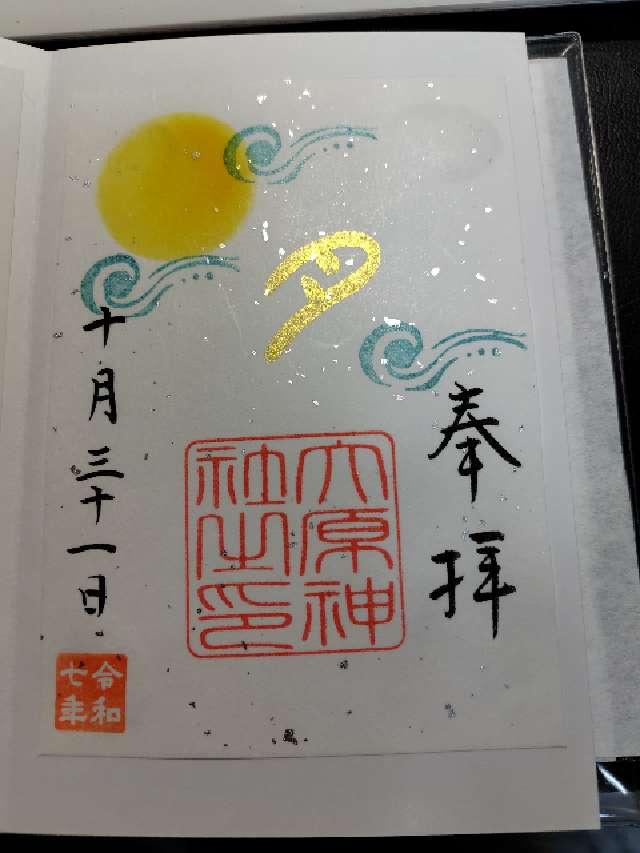 奉拝
月
大原神
社之印
十月三十一日
令和
七年